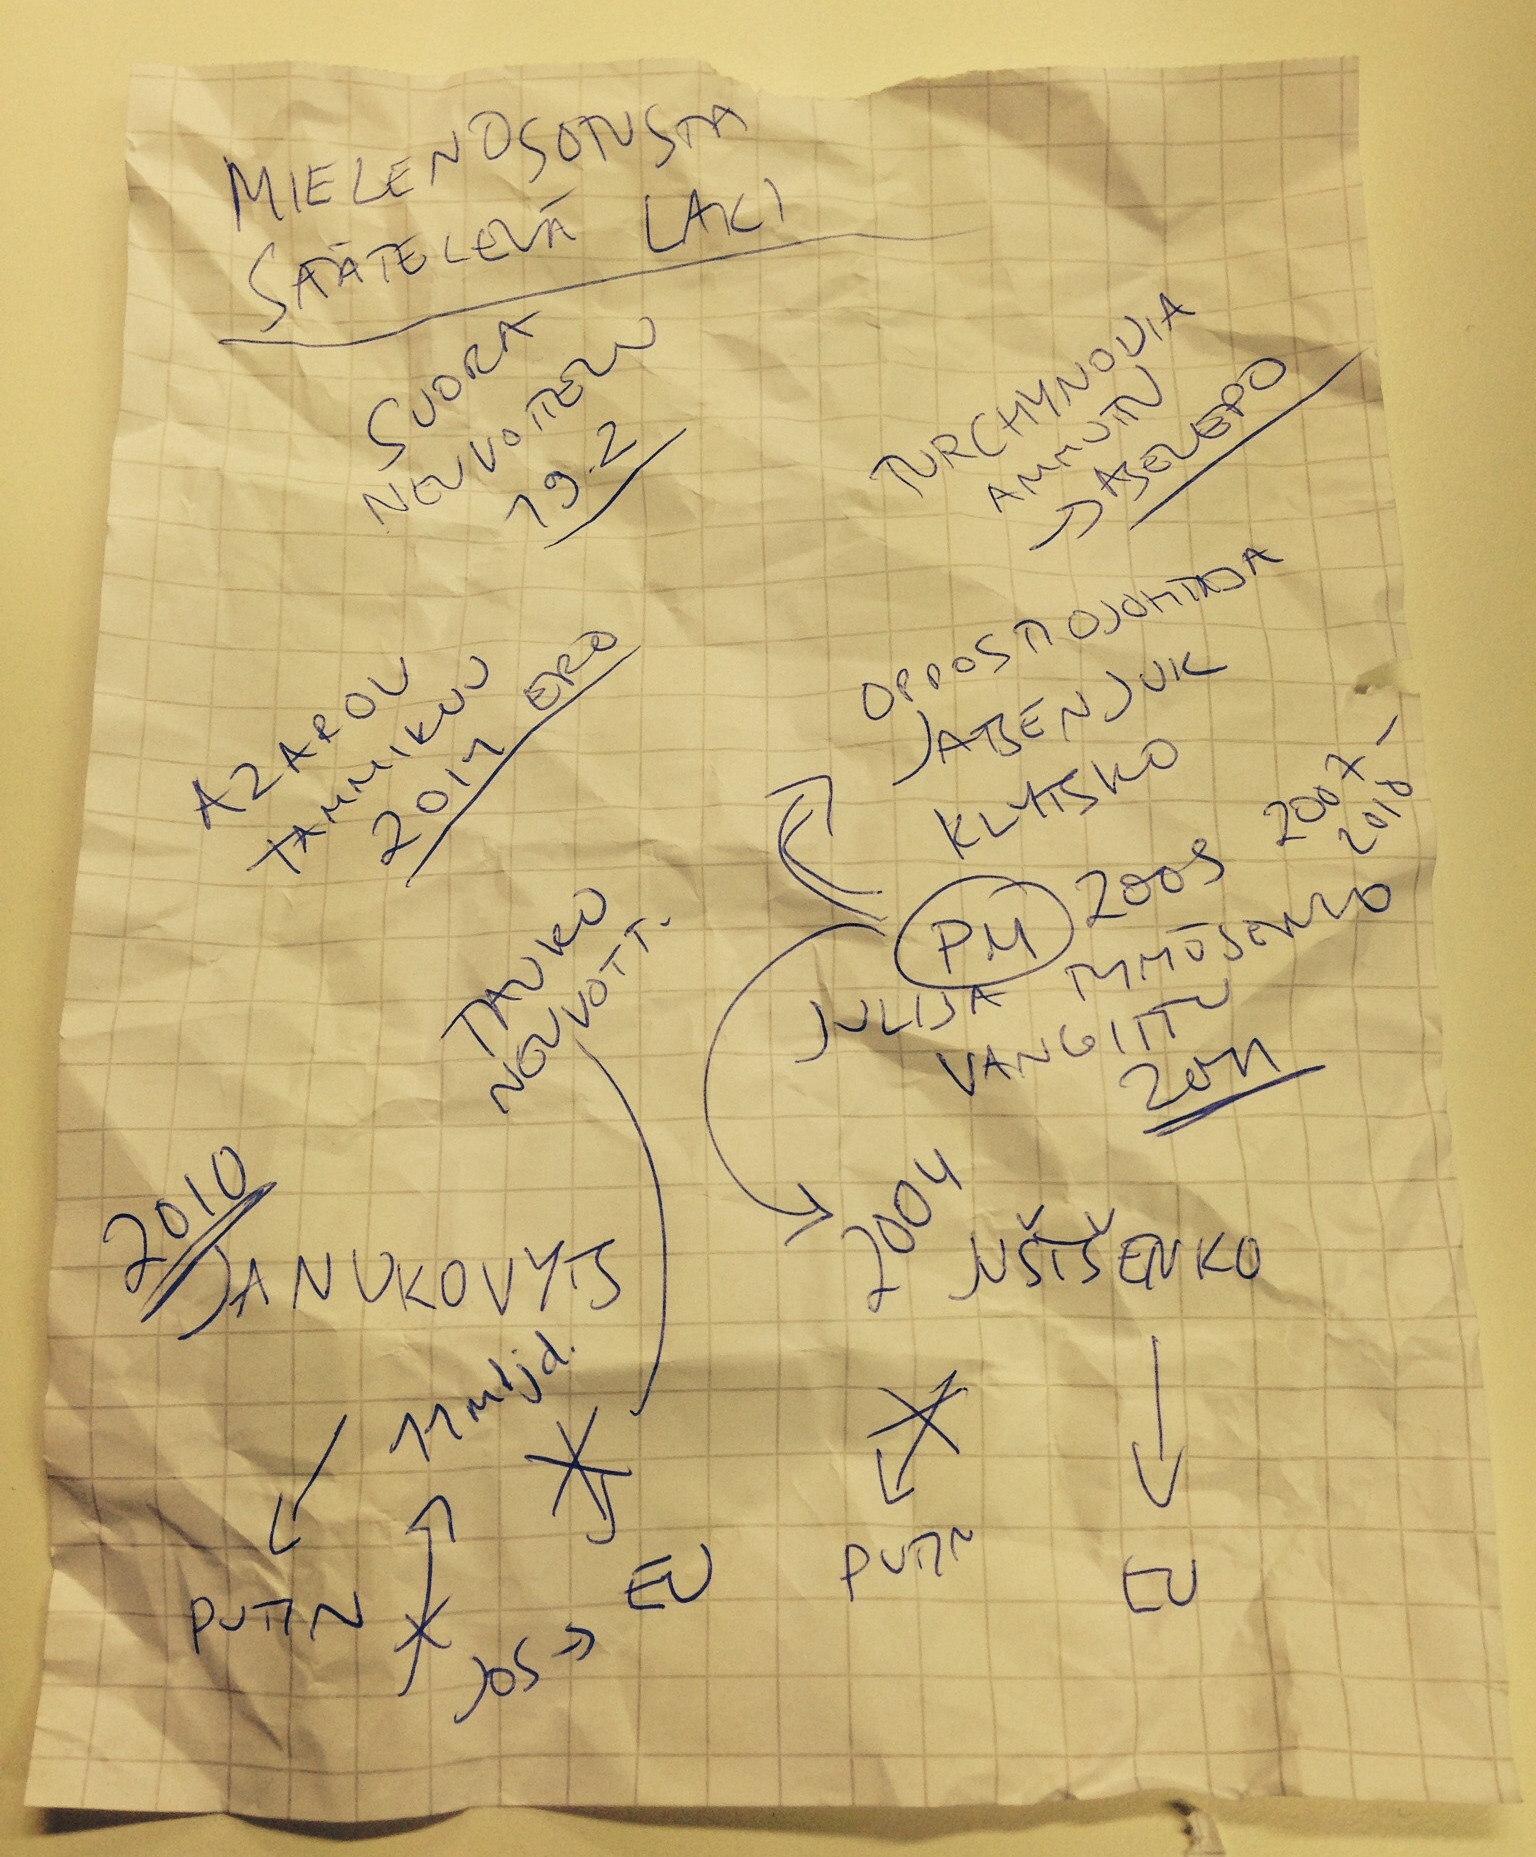 MIELENOSOTUSTA
SÄÄTELEVÄ LAKI
SUORA
NEUVOTTELU
19.2
TURCHYNOVIA
AMMUTTU
AZAROV
TAMMIKUU
2014 ERO
OPPOSITIOJOHTAJA
JATSENJUK
KLYTSKO
PM 2005 2007-
2010
JULIJA TYMOSENKO
VANGITTU
2011
TAUKO
NEUVOTT.
2010
JANUKOVYTS
2004 JUŠTŠENKO
11 mljd.
PUTIN
JOS →
EU
PUTIN
EU